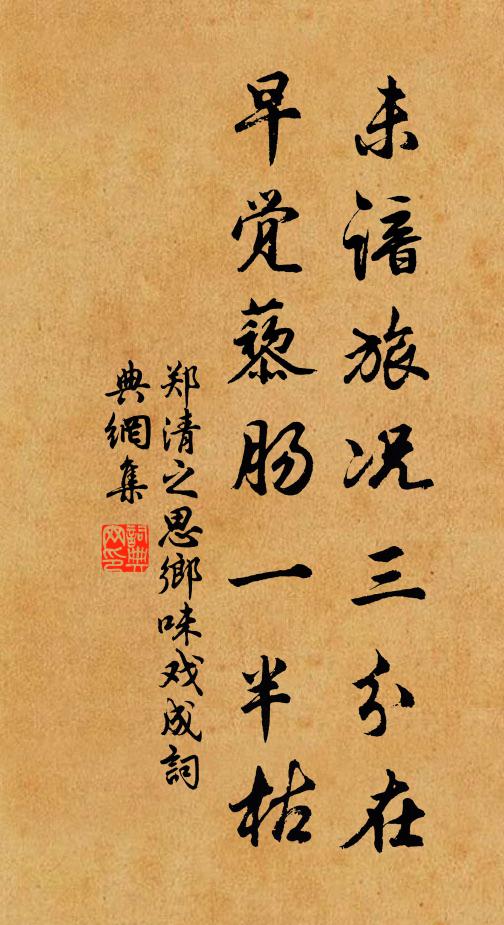 未谙旅况三分在
早觉藜肠一半枯
郑清之思鄉味戏成詞
典網集
詞典网印